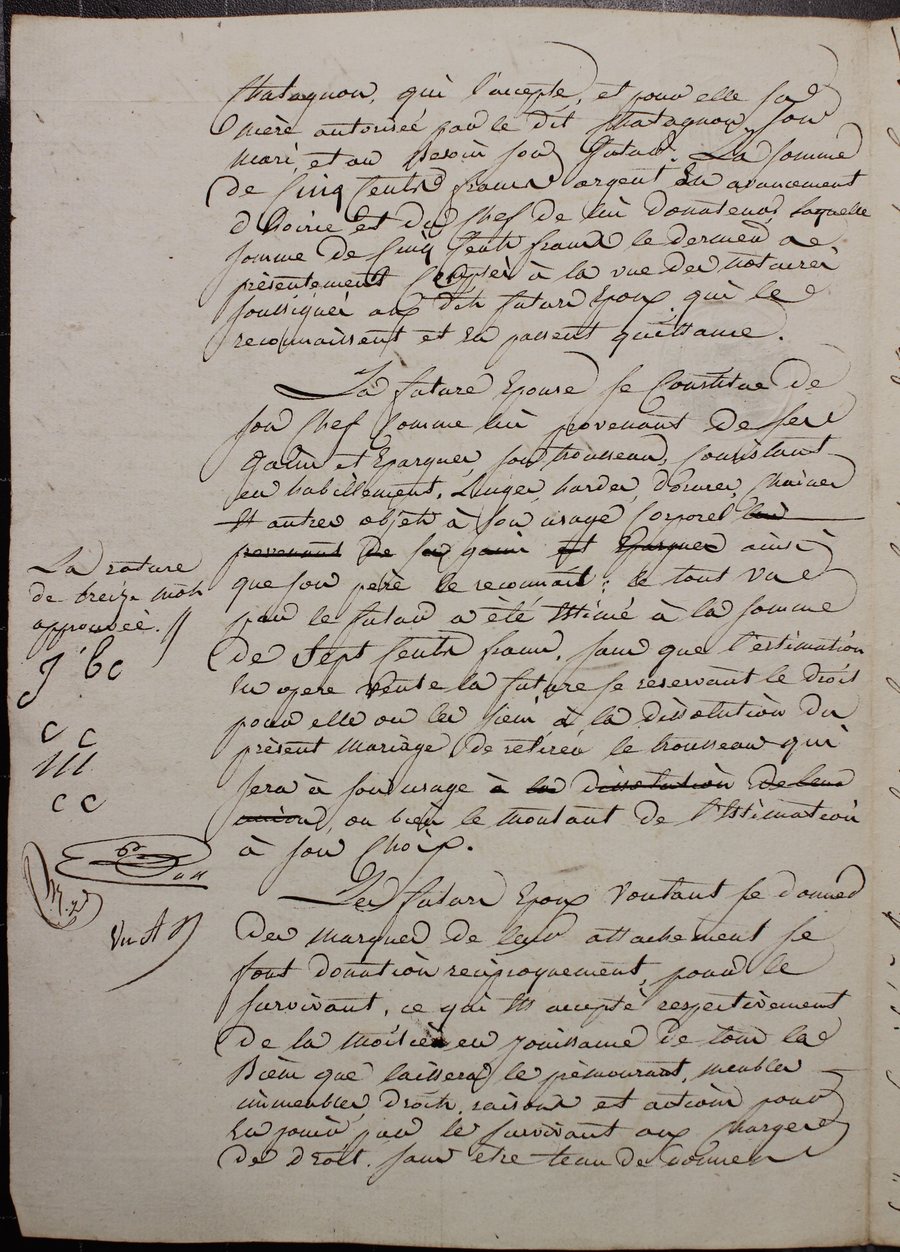 Chatagnon, qui l'accepte, et pour elle sa
mère autorisée par le dit Chatagnon, Son
mari, et au Besoin son futur. La somme
de Cinq Cents francs argent En avancement
d'hoirie et du Chef de lui donateur, laquelle
somme de Cinq Cents francs le dernier a
présentement Compté à la vue des Notaires
soussignés aux dits futurs Epoux qui le
reconnaissent et en passent quittance.
La future Epouse se Constitue de
son Chef Comme lui provenant de ses
Gains et Epargnes, son trousseau, Consistant
en habillements, Linges, hardes, dorures, Chaines
Et autres objets à son usage Corporel lui
provenant de ses gains et Epargnes ainsi
que son père le reconnait ; le tout vu
par le futur a été Estimé à la somme
de Sept Cents francs, sans que l'estimation
en opere Vente la future se reservant le droit
pour elle ou les siens à la dissolution du
présent mariage de retirer le trousseau qui
sera à son usage à la dissolution de leur
union, ou bien le montant de l'Estimation
à son Choix.
Les futurs Epoux Voulant se donner
des marques de leur attachement se
font donation reciproquement, pour le
survivant, ce qui Est accepté respectivement
de la Moitié en jouissance de tous les
Biens que laissera le prémourant, meubles
immeubles, droits, raisons et actions pour
en jouir par le survivant aux Charges
de droit. sans être tenu de donner
La rature
de treize mots
approuvée. //
J B c
c c
m
c c
Vu A